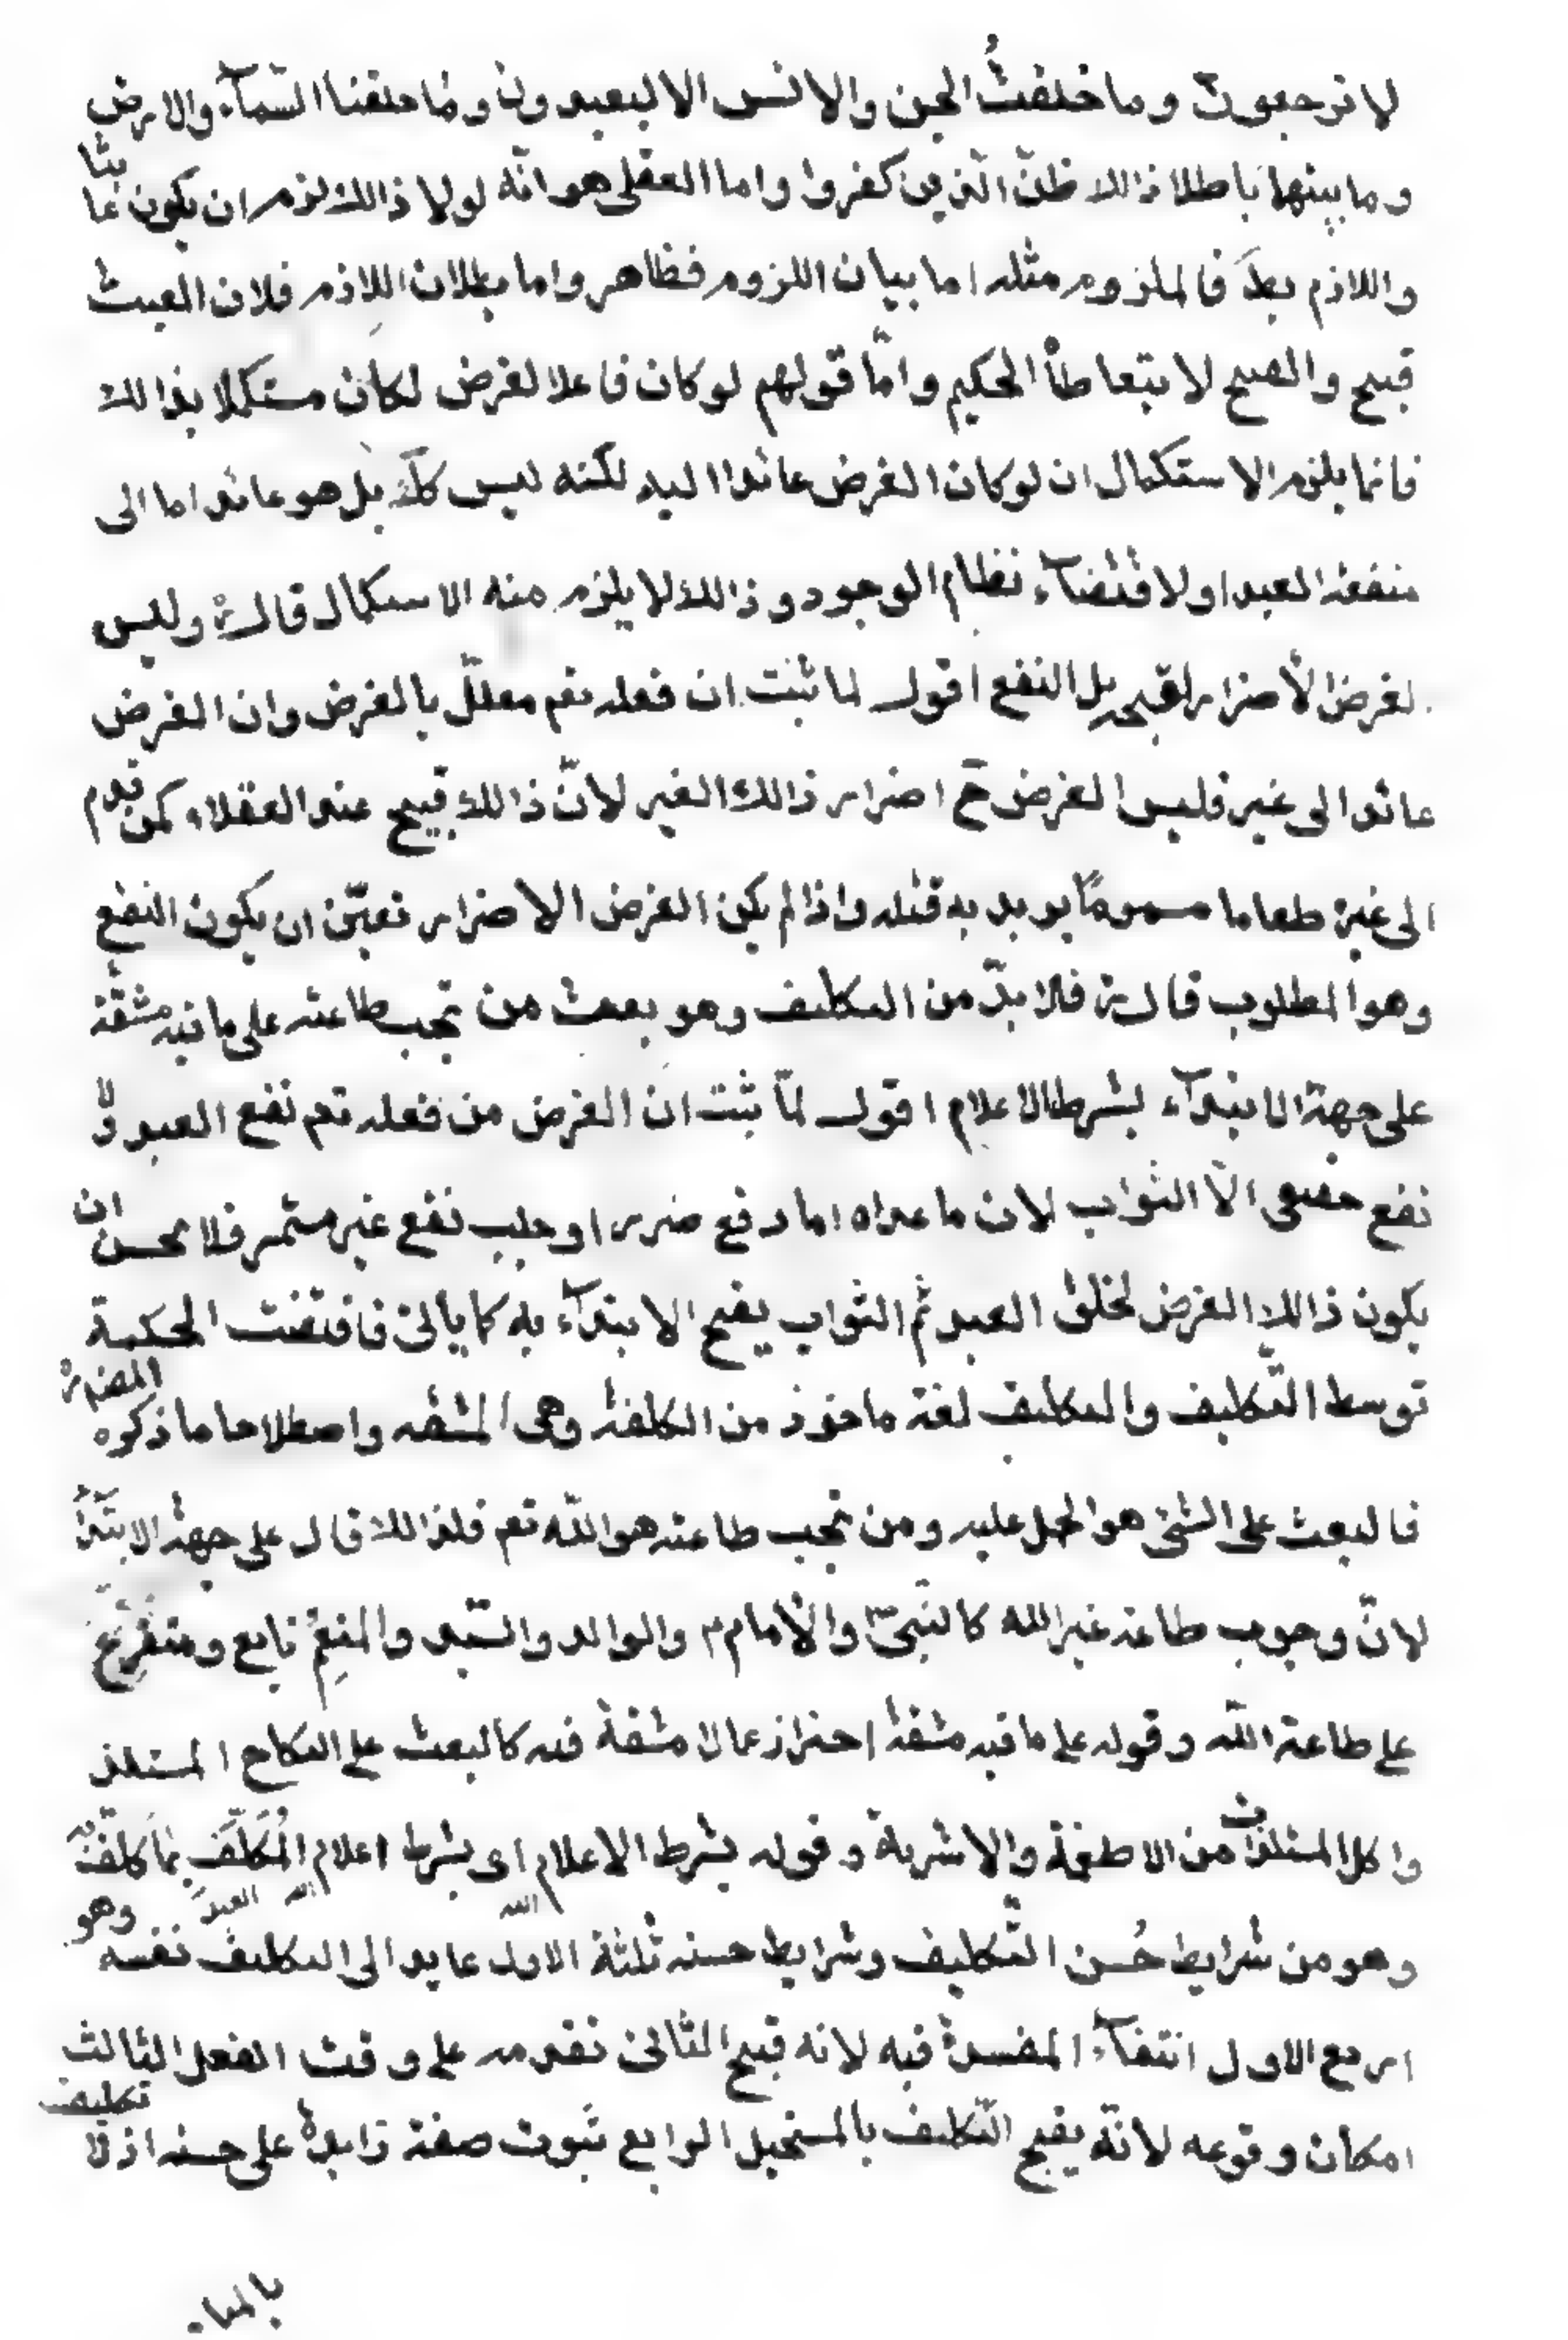 لا ترجعون وما خلقتُ الجن والانس الا ليعبدون وما خلقنا السّمآء والارض
وما بينهما باطلا ذالك ظنّ الّذين كفروا واما العقلى هو انّه لولا ذالك لزم ان يكون عابثا
واللازم بطَ فالملزوم مثله اما بيان اللزوم فظاهر واما بطلان اللازم فلان العبث
قبيح والقبيح لا يتعاطاْ الحكيم وامّا قولهم لو كان فاعلا لغرض لكان مستكملا بذالك
فانما يلزم الاستكمال ان لو كان الغرض عائدا اليه لكنه ليس كلّك بل هو عائد اما الى
منفعة العبد او لاقتضآء نظام الوجود وذالك لا يلزم منه الاستكمال قال ره وليس
لغرض الأضرار لقبحه بل النفع اقول لما ثبت ان فعله تعم معللّ بالغرض وان الغرض
عائد الى غيره فليس الغرض ح اضرار ذالك الغير لانّ ذالك قبيح عند العقلاء كمن قدم
الى غيره طعاما مسموماً يريد به قتله واذا لم يكن الغرض الاضرار تعيّن ان يكون النفع
وهو المطلوب قال ره فلا بدّ من التكليف وهو بعث من تجب طاعته على ما فيه مشقّة
على جهة الابتدآء بشرط الاعلام اقول لمّا ثبت ان الغرض من فعله تعم نفع العبد ولا
نفع حقيقى الّا الثواب لان ما عداه اما دفع ضرر او جلب نفع غير مستمر فلا يحسن ان
يكون ذالك الغرض لخلق العبد ثم الثواب يقبح الابتدآء به كما يأتى فاقتضت الحكمة
توسط التّكليف والتكليف لغة ماخوذ من الكلفة وهى المشقه واصطلاحا ما ذكره المصنف ره
فالبعث على الشئ هو الحمل عليه ومن تجب طاعته هو اللّه تعم فلذالك قال على جهة الابتدآء
لانّ وجوب طاعة غير الله كالنبىّ ص والأمام م والوالد والسّيد والمنعِمُ تابع ومتفرع
على طاعة اللّه وقوله على ما فيه مشقة احتراز عما لا مشقة فيه كالبعث على النكاح المستلذ
واكل المستلذات من الاطعمة والاشربة وقوله بشرط الاعلام اى بشرط اعلام المُكَلَّف بما كلّف به
الله العبد الله
وهو من شرايط حُسن التّكليف وشرايط حسنه ثلثة الاول عايد الى التكليف نفسه وهو
اربع الاول انتفآء المفسدة فيه لانه قبيح الثانى تقدمه على وقت الفعل الثالث
امكان وقوعه لانّه يقبح التّكليف بالمستحيل الرابع ثبوت صفة زايدة على حسنه اذ لا تكليف
بالمباح